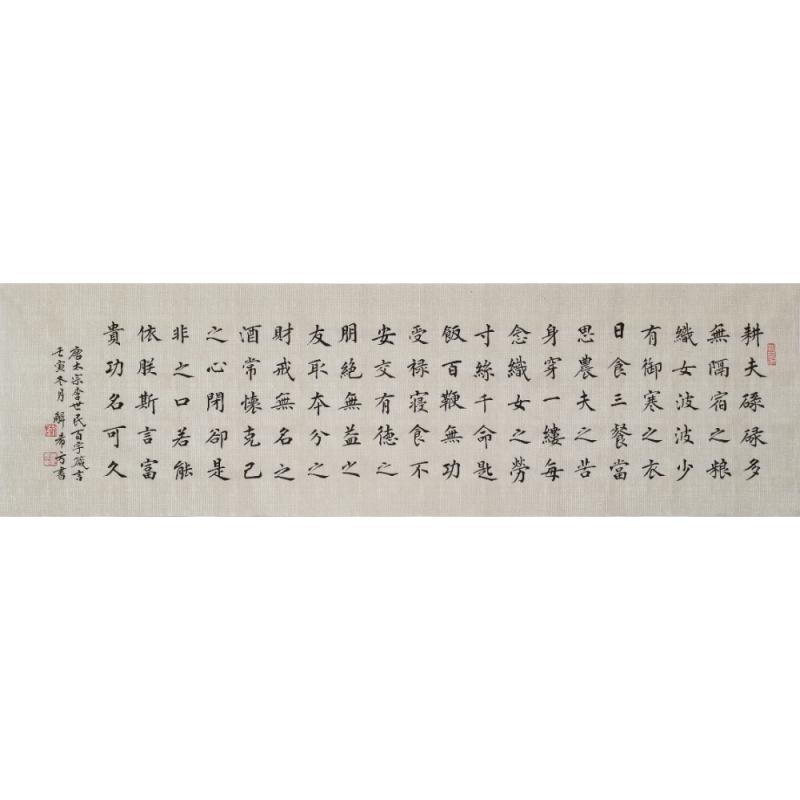 耕夫碌碌多
無隔宿之粮
織女波波少
有御寒之衣
日食三餐當
思農夫之苦
身穿一縷每
念織女之勞
寸絲千命匙
飯百鞭無功
受禄寝食不
安交有德之
朋絕無益之
友取本分之
財戒無名之
酒常懷克己
之心閉卻是
非之口若能
依朕斯言富
貴功名可久
唐太宗李世民百字箴言
壬寅冬月 解希方書